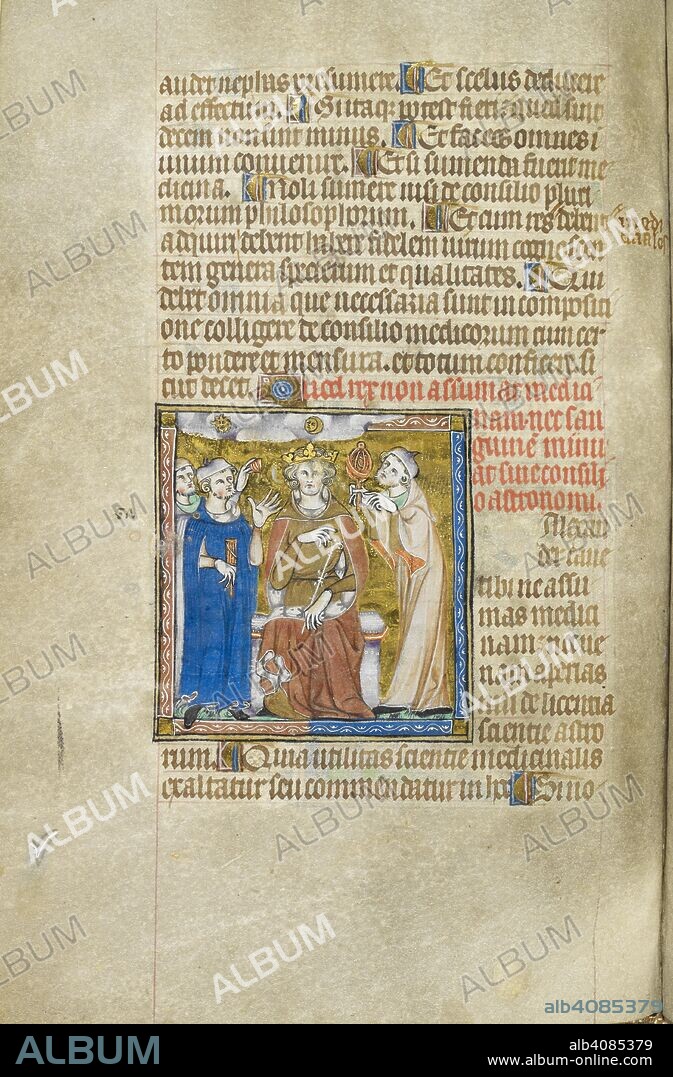 audet nephas presumere. Et scelus deducere
ad effectum. Si itaque potest fieri
decem non sint minus. Et fac eos omnes i
unum convenire. Et si sumenda fuerit me
dicina. Noli sumere nisi de consilio pluri
morum philosophorum. Et cum
debent habere fidelem virum
tem genera specierum et qualitates. Qui
debet omnia que necessaria sunt in compositi
one colligere de consilio medicorum cum cer
to pondere et mensura. et totum conficere. si
cut decet. rex non assumat medici
nam. nec san
guinem minu
at sine consili
o astronomi.
Alexan
der cave
tibi ne assu
mas medici
nam. neque
venam aperias
nisi de licentia
scientie astro
rum. Quia utilitas scientie medicinalis
exaltatur seu commendatur in hoc Si no
ALBUM
alb4085379
ALBUM
alb4085379
www.album-online.com